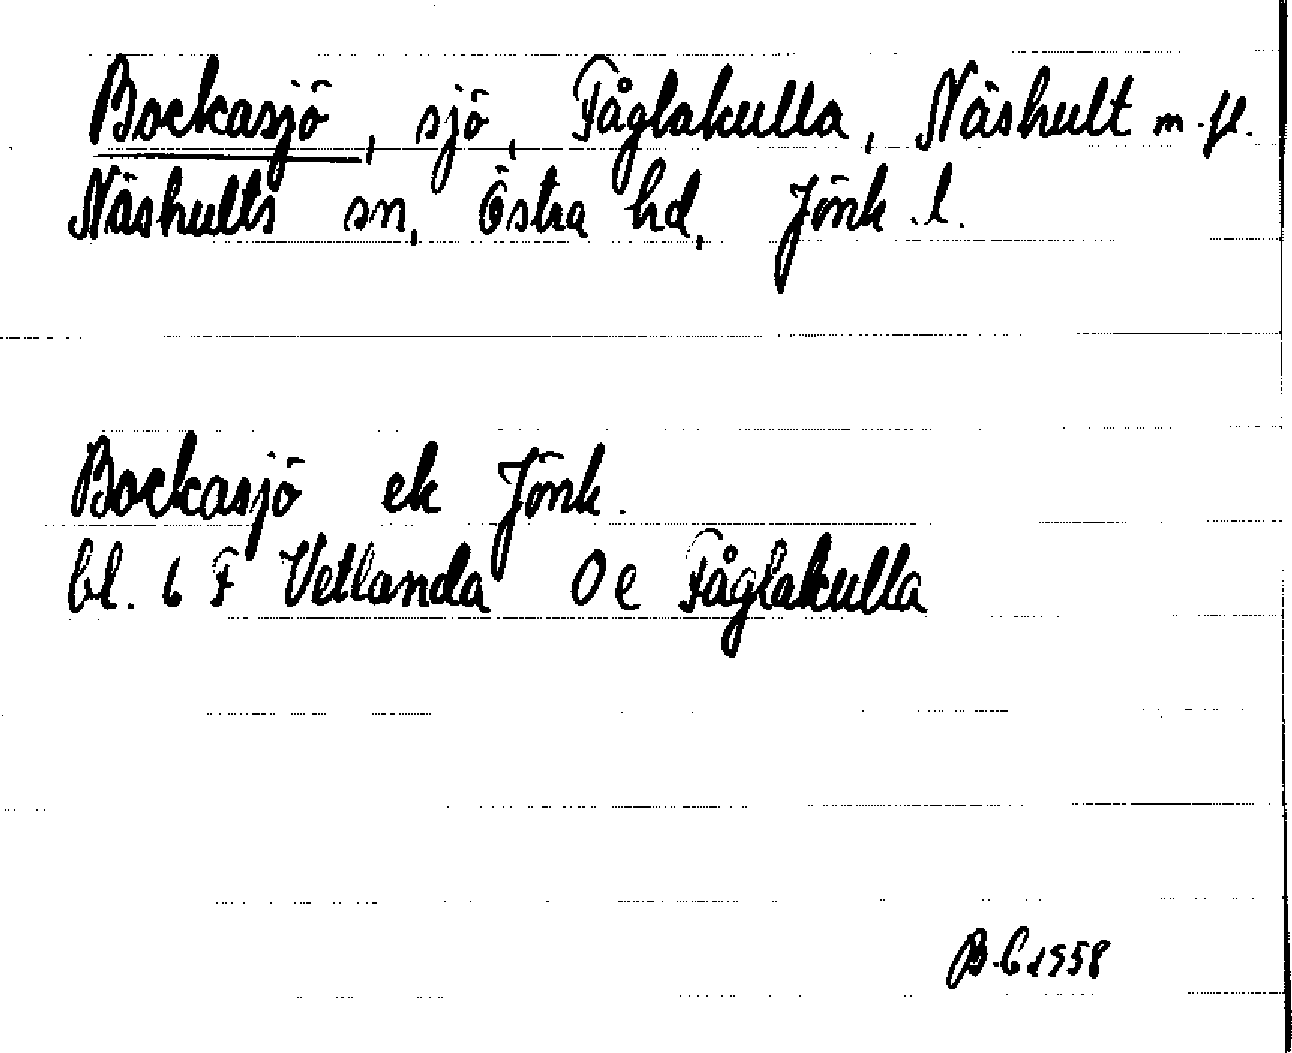 Bockasjö, sjö, Fåglakulla, Näshult m.fl.
Näshults sn, Östra hd, Jönk.l.
Bockasjö ek Jönk.
bl. 6 F Vetlanda 0 e Fåglakulla
B.C 1958